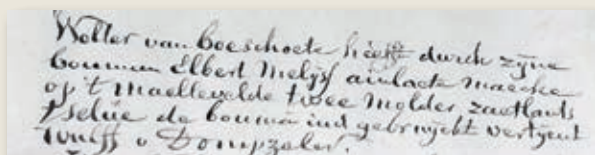 Wolter van boeschoete heefft durch zijne
bouman Elbert Melijs ainlacte maecke
op 't maellevelde twee molder zaetlants
t'selue de bouman ind gebruijckt vertynt
v Dompzeler.